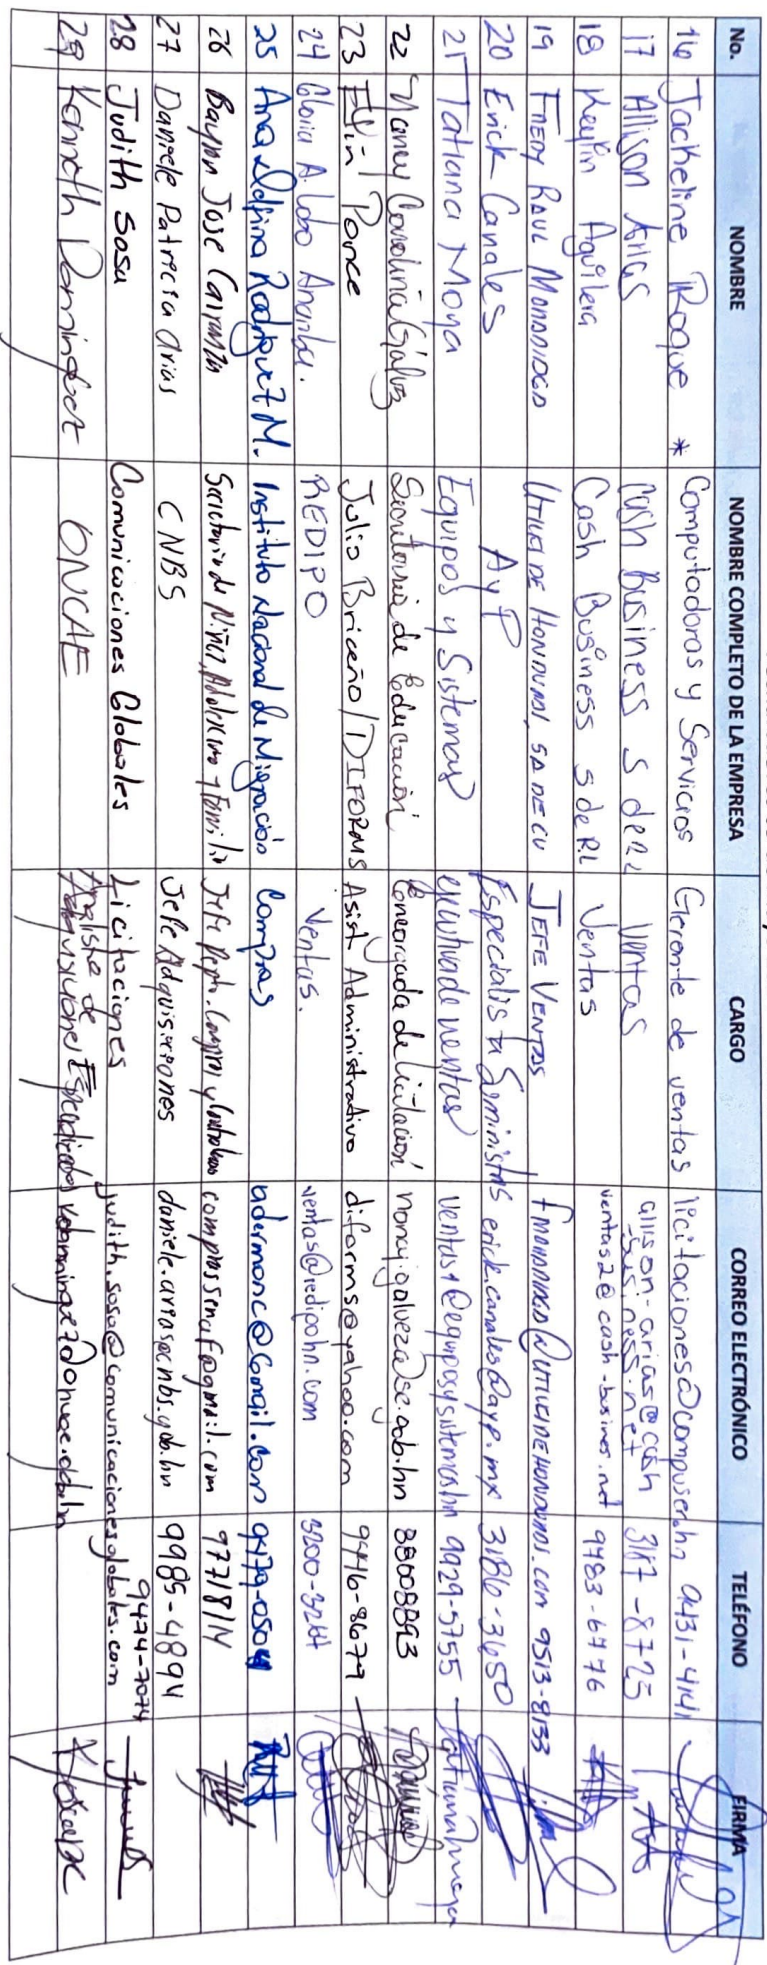 No. NOMBRE NOMBRE COMPLETO DE LA EMPRESA CARGO CORREO ELECTRÓNICO TELÉFONO FIRMA
16 Jackeline Roque * Computadoras y Servicios Gerente de ventas licitaciones@compuser.hn 9431-4141
17 Allison Arias Cash Business S de RL Ventas allison.arias@cash
-business.net 3187-8725
18 Keylin Aguilera Cash Business S de RL Ventas ventas2@cash-business.net 9483-6476
19 FREDY RAUL MONDRAGON UTILES DE HONDURAS, SA DE CV JEFE VENTAS 9513-8133
20 Erick Canales AyP Especialista Suministros erick.canales@ayp.mx 3186-3650
21 Tatiana Moya Equipos y Sistemas ejecutiva de ventas ventas1@equiposysistemas.hn 9929-5755
22 Nancy Carolina Gálvez Secretaria de Educación Encargada de Licitación nancy.galvez@se.gob.hn 88608893
23 Elin Ponce Julio Briceño/DIFORMS Asist. Administrativo diforms@yahoo.com 9416-8679
24 Gloria A. Lobo REDIPO Ventas. ventas@redipohn.com
25 Ana Delfina Rodriguez M. Instituto Nacional de Migración Compras adermonc@Gmail.com 9479-0504
26 Bayron Jose Carranza Secretaria de Niñez, Adolescencia y Familia Jefe Depto. Compras y Contrataciones comprassenaf@gmail.com 97718114
27 Daniele Patricia Arias CNBS Jefe Adquisiciones daniele.arias@cnbs.gob.hn 9985-4894
28 Judith Sosa Comunicaciones Globales Licitaciones judith.sosa@comunicacionesglobales.com 9474-7074
29 Kenneth Dominguez ONCAE Analista de
Adquisiciones Especializadas